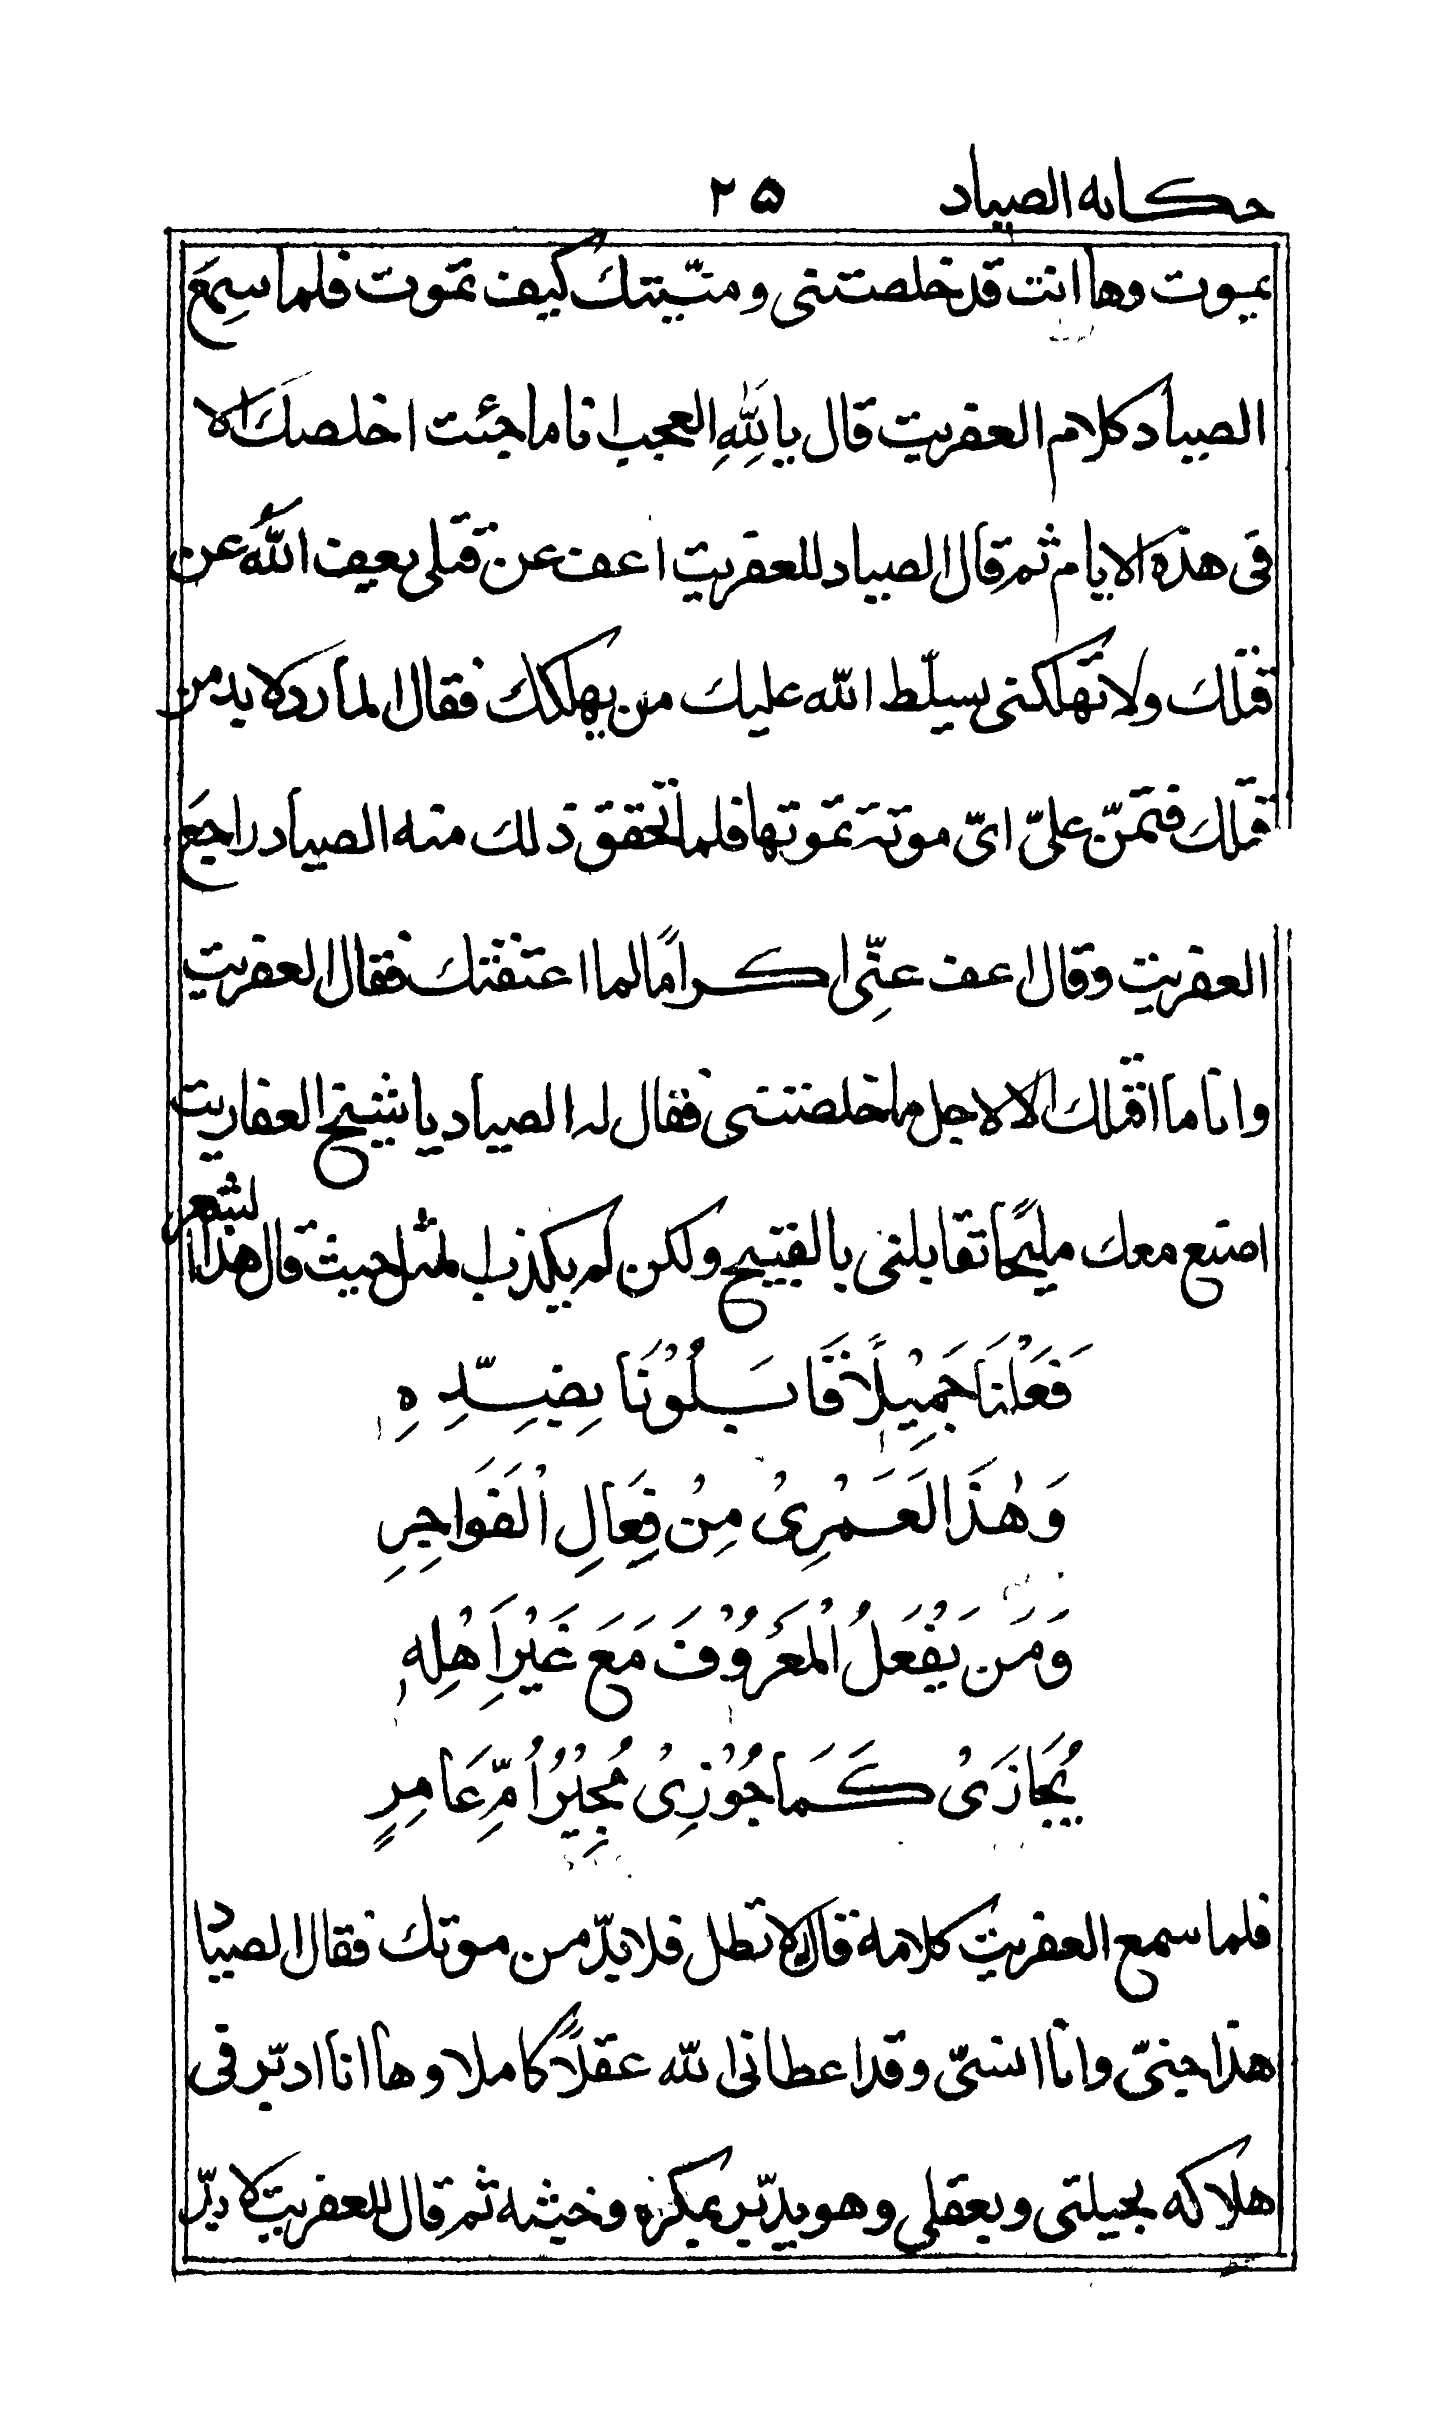 حكاية الصياد ٢٥
يموت وها انت قد خلصتنى ومنّيتك كيف تموت فلما سمِعَ
الصياد كلام العفريت قال يا لَلّٰهِ العجب انا ما جئت اخلصك الا
فى هذه الايام ثم قال الصياد للعفريت اعف عن قتلى يعف اللّٰه عن
قتلك ولا تهلكنى يسلّط اللّٰه عليك من يهلكك فقال المارد لا بد من
قتلك فتمنّ علىّ اىّ موتة تموتها فلما تحقق ذلك منه الصياد راجع
العفريت وقال اعف عنّى اكراماً لما اعتقتك فقال العفريت
وانا ما اقتلك الا لاجل ما خلصتنى فقال له الصياد يا شيخ العفاريت
اصنع معك مليحًا تقابلنى بالقبيح ولكن لم يكذب المثل حيث قال هذا الشعر
فَعَلْنَا جَمِيْلًا قَابَلُوْنَا بِضِدِّهِ
وَهٰذَا لَعَمْرِىْ مِنْ فِعَالِ الْفَوَاجِرِ
وَمَن يَفْعَلُ الْمَعْرُوْفَ مَعَ غَيْرِ اَهْلِهٖ
يُجَازَىْ كَمَا جُوْزِىْ مُجِيْرُ اُمِّ عَامِرٍ
فلما سمع العفريت كلامه قال له لا تطل فلا بدّ من موتك فقال الصياد
هذا جنىّ وانا انسىّ وقد اعطانى اللّٰه عقلًا كاملا وها انا ادبّر فى
هلاكه بحيلتى وبعقلى وهو يدبّر بمكره وخبثه ثم قال للعفريت لا بدّ